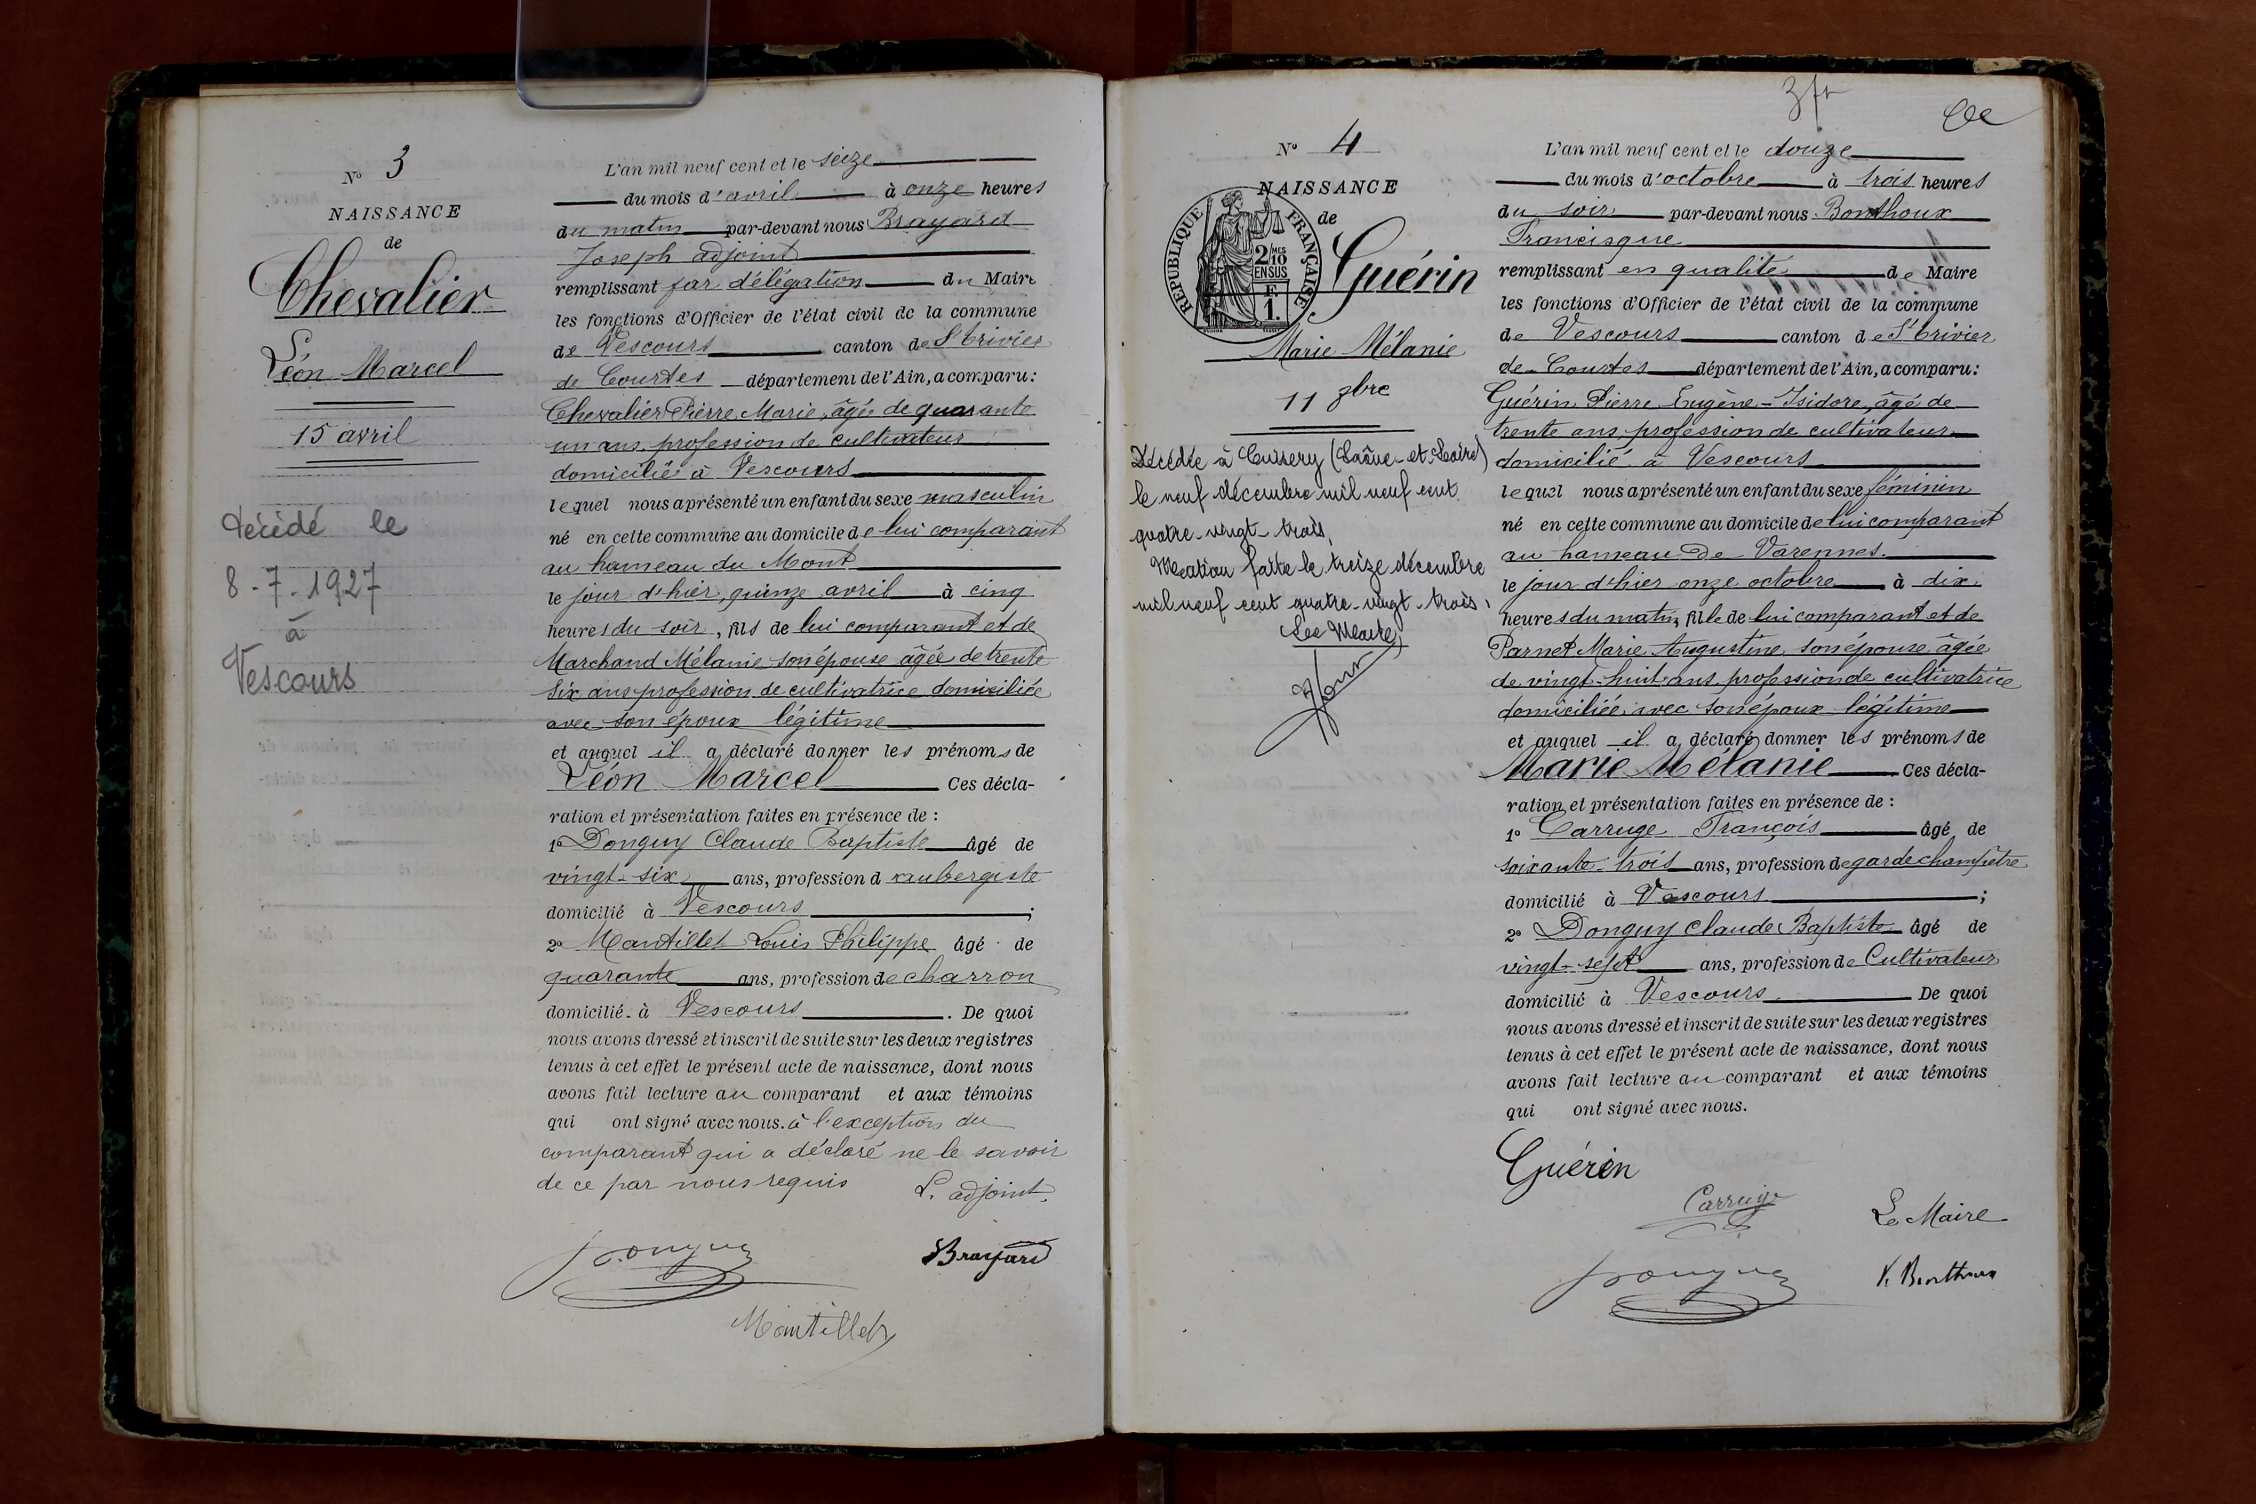 N° 3
NAISSANCE
de
Chevalier
Léon Marcel
15 avril
Décédé le
8-7-1927
à
Vescours
L'an mil neuf cent et le seize
du mois d'avril à onze heures
du matin par-devant nous Brayard
Joseph adjoint
remplissant par délégation du Maire
les fonctions d'Officier de l'état civil de la commune
de Vescours canton de St Trivier
de Courtes département de l'Ain, a comparu:
Chevalier Pierre Marie, âgé de quarante
un ans, profession de cultivateur
domicilié à Vescours
lequel nous a présenté un enfant du sexe masculin
né en cette commune au domicile de lui comparant
au hameau du Mont
le jour d'hier, quinze avril à cinq
heures du soir, fils de lui comparant et de
Marchand Mélanie son épouse âgée de trente
six ans profession de cultivatrice domiciliée
avec son époux légitime
et auquel il a déclaré donner les prénoms de
Léon Marcel Ces décla-
ration et présentation faites en présence de :
1° Donguy Claude Baptiste âgé de
vingt-six ans, profession d'aubergiste
domicilié à Vescours ;
2° Mantillet Louis Philippe âgé de
quarante ans, profession de charron
domicilié à Vescours . De quoi
nous avons dressé et inscrit de suite sur les deux registres
tenus à cet effet le présent acte de naissance, dont nous
avons fait lecture au comparant et aux témoins
qui ont signé avec nous. à l'exception du
comparant qui a déclaré ne le savoir
de ce par nous requis
L. adjoint.
Donguy
Brayard
Mantillet
3 fr
N° 4
NAISSANCE
de
RÉPUBLIQUE FRANÇAISE
2/10 MES
EN SUS
F.
1.
Guérin
Marie Mélanie
11 8bre
Décédée à Cuisery (Saône-et-Loire)
le neuf décembre mil neuf cent
quatre-vingt-trois.
Mention faite le treize décembre
mil neuf cent quatre-vingt-trois.
Le Maire,
L'an mil neuf cent et le douze
du mois d'octobre à trois heures
du soir par-devant nous Bonthoux
Francisque
remplissant en qualité de Maire
les fonctions d'Officier de l'état civil de la commune
de Vescours canton de St Trivier
de Courtes département de l'Ain, a comparu:
Guérin Pierre Eugène-Isidore, âgé de
trente ans, profession de cultivateur
domicilié à Vescours
lequel nous a présenté un enfant du sexe féminin
né en cette commune au domicile de lui comparant
au hameau de Varennes.
le jour d'hier onze octobre à dix
heures du matin, fille de lui comparant et de
Parnet Marie Augustine, son épouse âgée
de vingt-huit ans profession de cultivatrice
domiciliée avec son époux légitime
et auquel il a déclaré donner les prénoms de
Marie Mélanie Ces décla-
ration et présentation faites en présence de :
1° Carruge François âgé de
soixante-trois ans, profession de garde champêtre
domicilié à Vescours ;
2° Donguy Claude Baptiste âgé de
vingt-sept ans, profession de Cultivateur
domicilié à Vescours De quoi
nous avons dressé et inscrit de suite sur les deux registres
tenus à cet effet le présent acte de naissance, dont nous
avons fait lecture au comparant et aux témoins
qui ont signé avec nous.
Guérin
Carruge
Le Maire
Donguy
F. Bonthoux